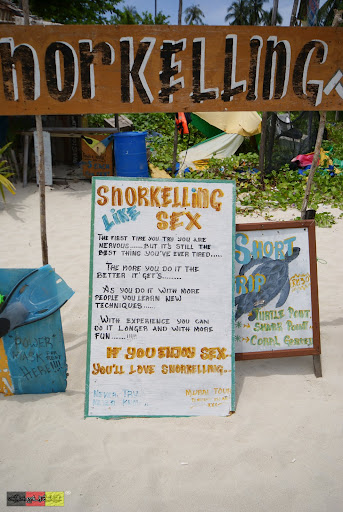 SNORKELLING
SNORKELLING
LIKE SEX
THE FIRST TIME YOU TRY YOU ARE
NERVOUS....... BUT IT'S STILL THE
BEST THING YOU'VE EVER TIRED.....
THE MORE YOU DO IT THE
BETTER IT GET'S........
AS YOU DO IT WITH MORE
PEOPLE YOU LEARN NEW
TECHNIQUES.....
WITH EXPERIENCE YOU CAN
DO IT LONGER AND WITH MORE
FUN.......!!!
IF YOU ENJOY SEX..
YOU'LL LOVE SNORKELLING..
SHORT
TRIP
TURTLE POINT
SHARK POINT
CORAL GARDEN
"POWER"
MASK FOR
HERE!!!